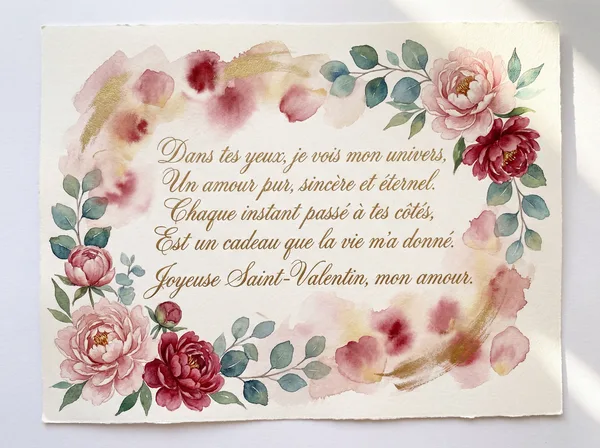 Dans tes yeux, je vois mon univers,
Un amour pur, sincère et éternel.
Chaque instant passé à tes côtés,
Est un cadeau que la vie m'a donné.
Joyeuse Saint-Valentin, mon amour.